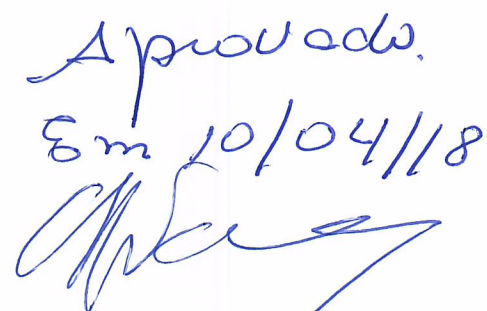 Aprovado.
Em 10/04/18